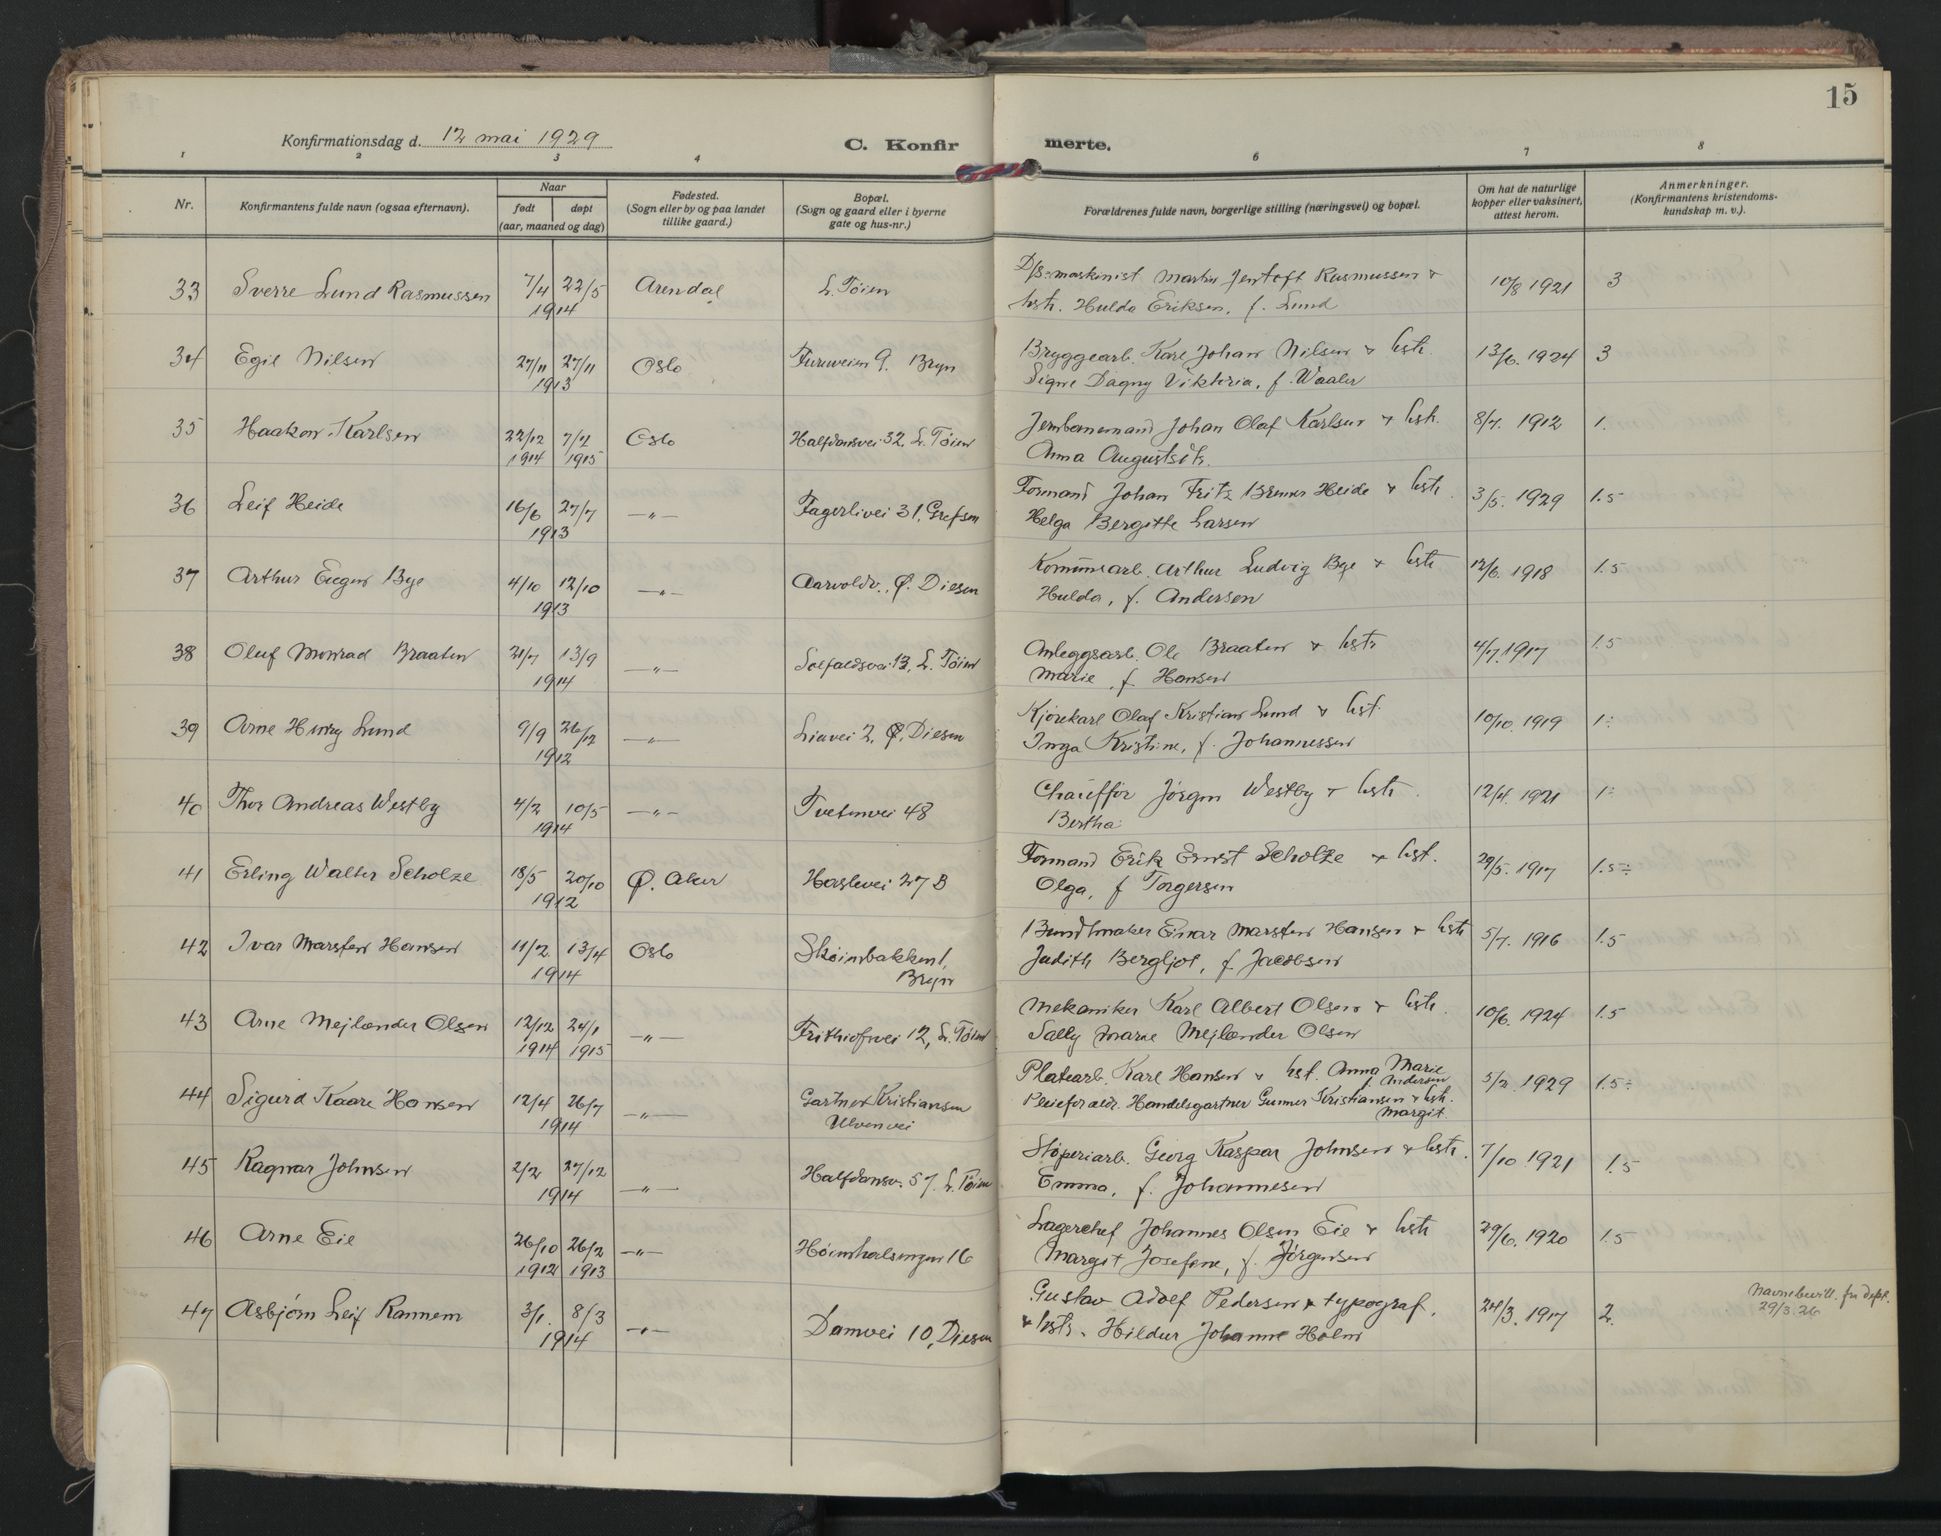 15
Konfirmationsdag d. 12 mai 1929
C. Konfir merte.
1 2 3 4 6 7 8
Nr.
Konfirmantens fulde navn (ogsaa efternavn).
Naar
født døpt
(aar, maaned og dag)
Fødested.
(Sogn eller by og paa landet
tillike gaard.)
Bopæl.
(Sogn og gaard eller i byerne
gate og hus-nr.)
Forældrenes fulde navn, borgerlige stilling (næringsvei) og bopæl.
Om hat de naturlige
kopper eller vaksinert,
attest herom.
Anmerkninger.
(Konfirmantens kristendoms-
kundskap m. v.).
33 Sverre Lund Rasmussen 7/4 22/5 Arendal L. Tøien D/s-maskinist Martin Jentoft Rasmussen & 10/8 1921 3
1914 hstr. Hulda Eriksen, f. Lund
34 Egil Nilsen 27/11 27/11 Oslo Furuveien 9. Bryn Bryggearb. Karl Johan Nilsen & hstr. 13/6. 1924 3
1913 Signe Dagny Viktoria, f. Waaler
35 Haakon Karlsen 22/12 7/2 Oslo Halfdansvei 32, L. Tøien Jernbanemand Johan Olaf Karlsen & hstr. 8/7. 1912 1.
1914 1915 Anna Augustsdtr.
36 Leif Heide 16/6 27/7 —"— Fagerlivei 31, Grefsen Formand Johan Fritz Heide & hstr. 3/5. 1929 1.5
1913 Helga Bergitte Larsen
37 Arthur Eugen Bye 4/10 12/10 —"— Aarvoldv., Ø. Diesen Komunearb. Arthur Ludvig Bye & hstr 12/6. 1918 1.5
1913 Hulda, f. Andersen
38 Oluf Monrad Braaten 21/7 13/9 —"— Solfaldsvei 13, L. Tøien Anleggsarb. Ole Braaten & hstr 4/7. 1917 1.5
1914 Marie, f. Hansen
39 Arne Henry Lund 9/9 26/12 —"— Liavei 2, Ø. Diesen Kjørekarl Olaf Kristian Lund & hst. 10/10. 1919 1÷
1912 Inga Kristine, f. Johannessen
40 Thor Andreas Westby 4/2 10/5 —"— Tvetenvei 48 Chauffør Jørgen Westby & hstr. 12/4. 1921 1÷
1914 Bertha
41 Erling Walter Scholze 18/5 20/10 Ø. Aker Haslevei 27 B Formand Erik Ernst Scholze & hst. 29/5. 1917 1.5÷
1912 Olga, f Torgersen
42 Ivar Marsten Hansen 11/2 13/4 Oslo Skøienbakken 1, Bundtmaker Einar Marsten Hansen & hstr 5/7. 1916 1.5
1914 Bryn Judith Bergljot, f. Jacobsen
43 Arne Mejlænder Olsen 12/12 24/1 —"— Frithiofvei 12, L. Tøien Mekaniker Karl Albert Olsen & hstr. 10/6. 1924 1.5
1914 1915 Sally Marie Mejlænder Olsen
44 Sigurd Kaare Hansen 12/4 26/7 —"— Gartner Kristiansen Platearb. Karl Hansen & hst. Anna Marie 5/2. 1929 1.5÷
f. Andersen
1914 Ulvenvei Pleieforældr. Handelsgartner Gunnar Kristiansen & hstr.
Margit.
45 Ragnar Johnsen 2/2 27/12 —"— Halfdansv. 57. L. Tøien Støperiarb. Georg Kaspar Johnsen & hstr. 7/10. 1921 1.5
1914 Emma, f. Johannesen
46 Arne Eie 26/10 26/2 —"— Høienhalsvingen 16 Lagerchef Johannes Olsen Eie & hstr 29/6. 1920 1.5
1912 1913 Margit Josefine, f. Jørgensen
47 Asbjørn Leif Rannem 3/1. 8/3 —"— Damvei 10, Diesen Gustav Adolf Pedersen & typograf. 24/3. 1917 2. Navnebevill. fra dept.
1914 & hstr. Hildur Johanne Holm 29/3.26